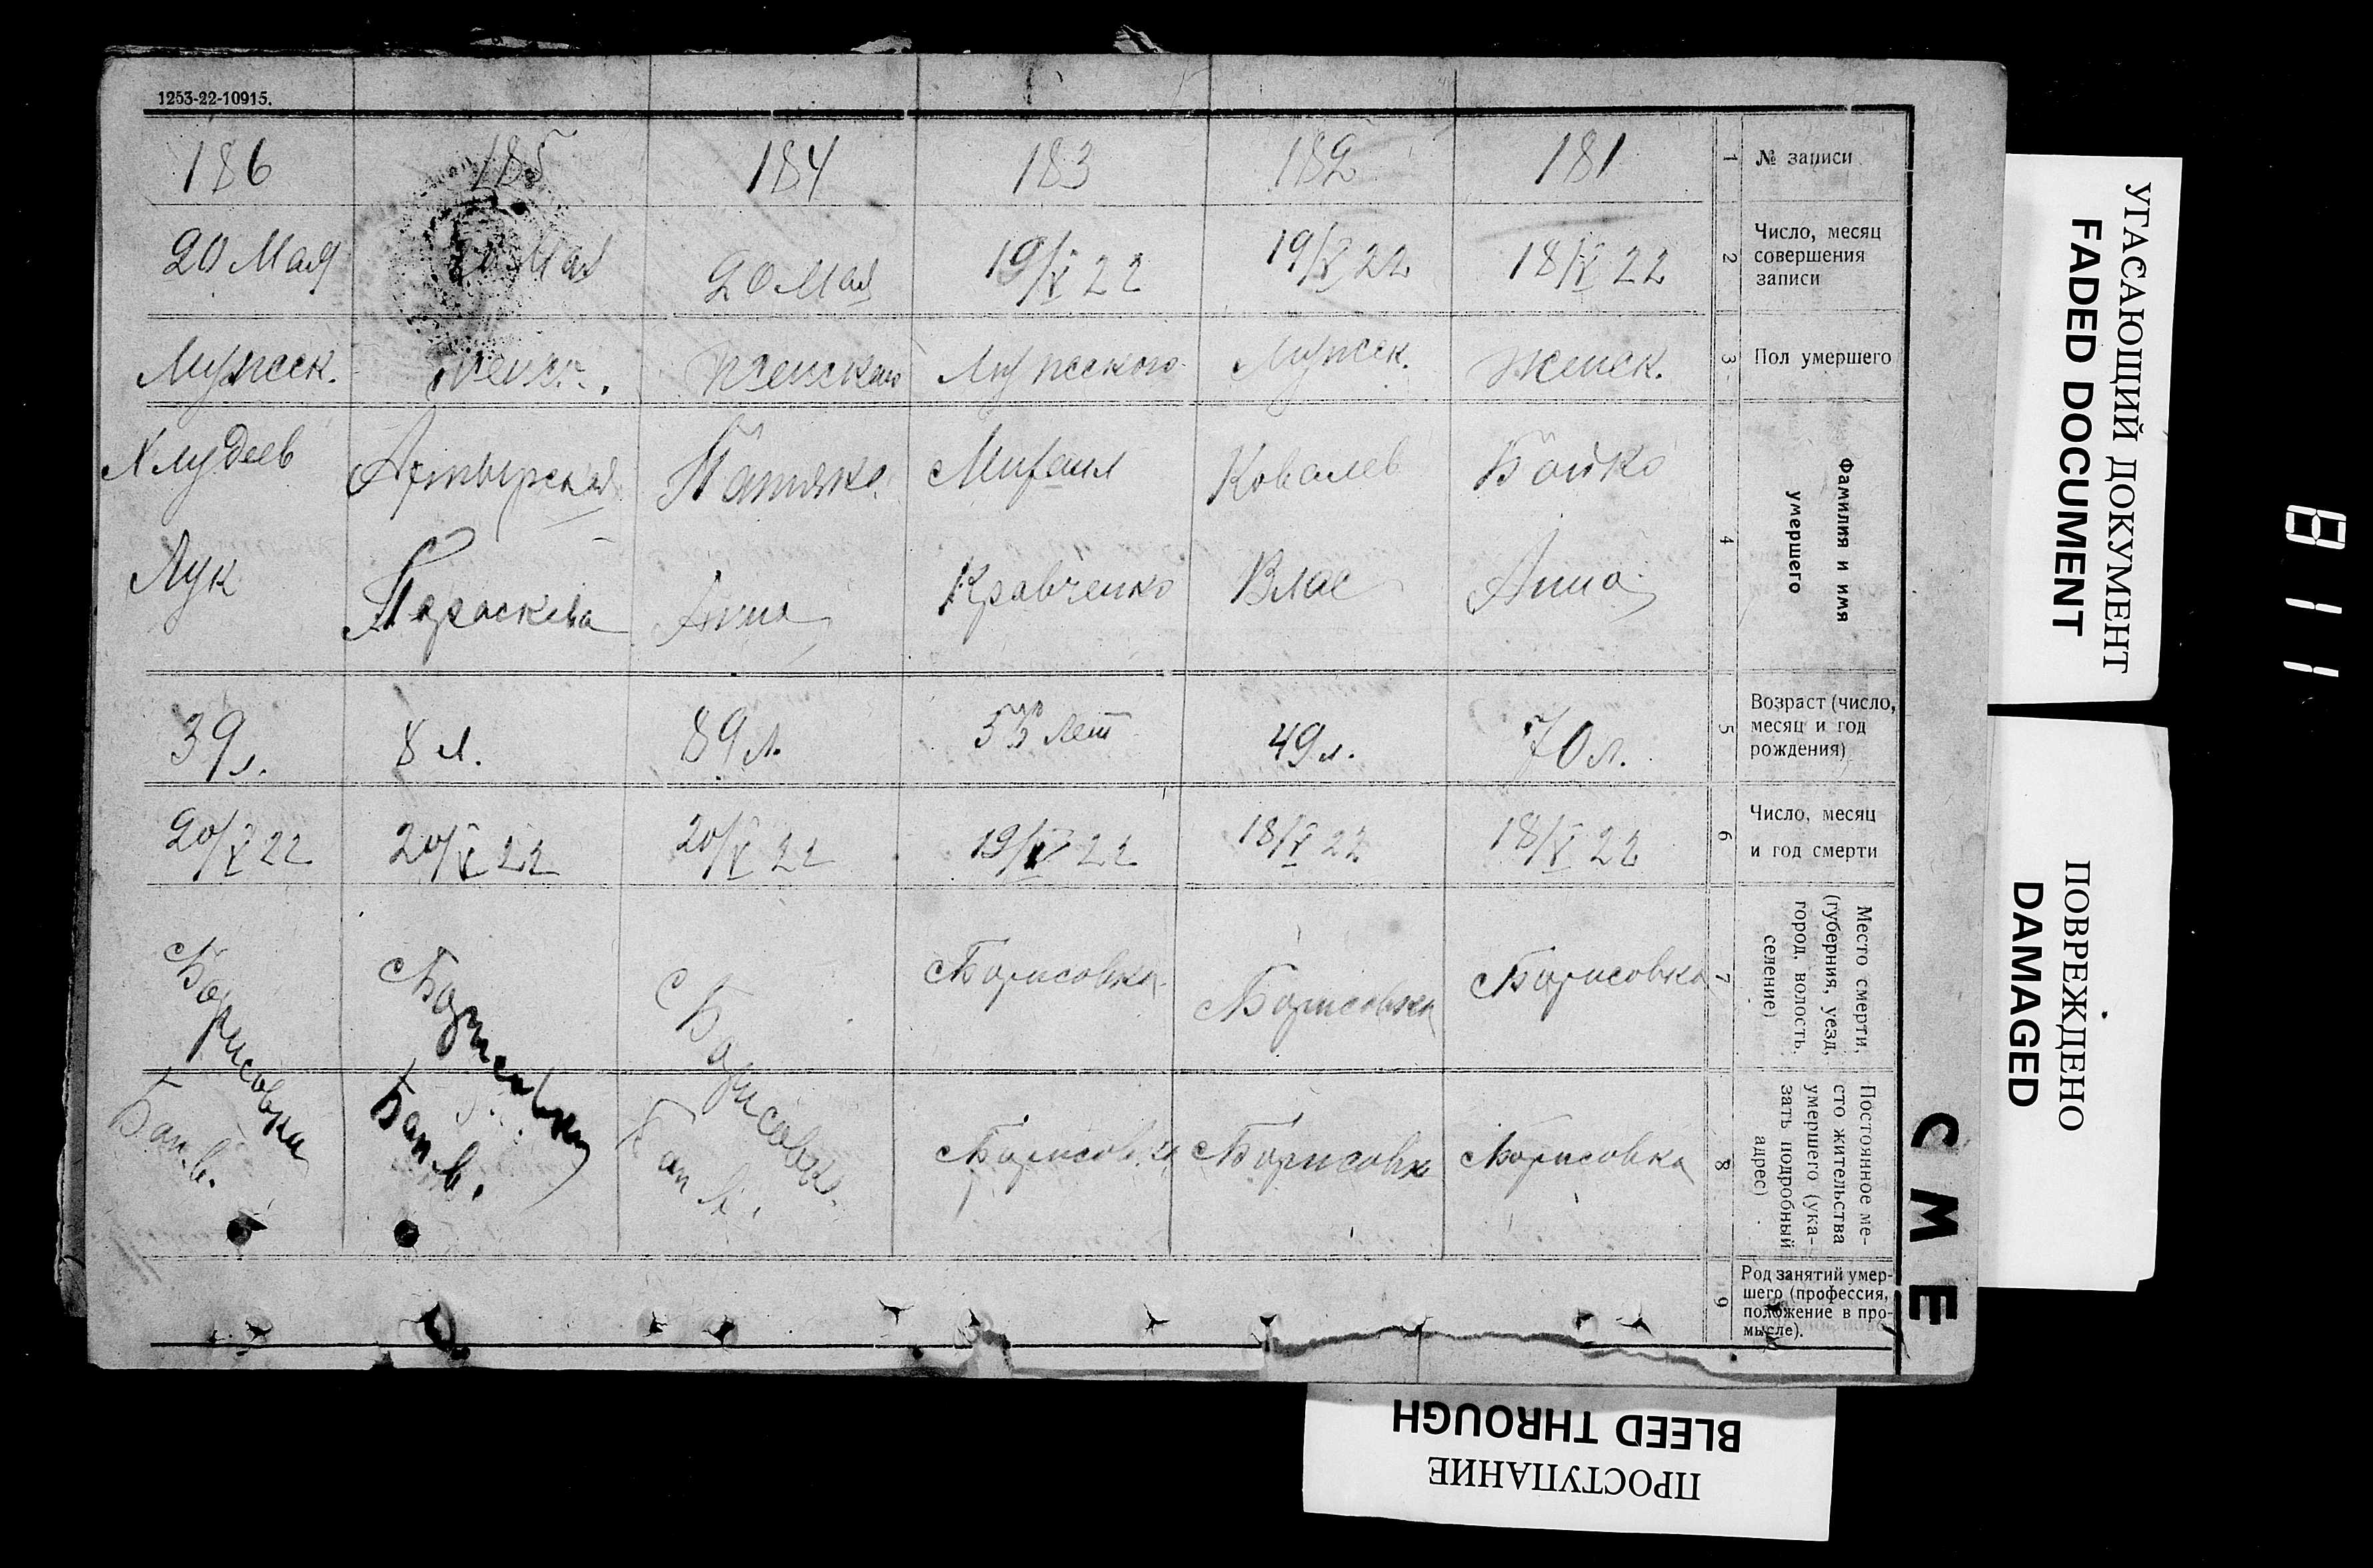 1253-22-10915.
186 185 184 183 182 181 1 № записи
20 Мая 20 Мая 20 Мая 19/V 22 19/V 22 18/V 22 2 Число, месяц
совершения
записи
Мужск. женск. женского Мужского Мужск. женск. 3 Пол умершего
Ковалев Бойко
Михаил
4 Фамилия и имя
умершего
Лук Параскева Анна Кравченко Влас Анна
39 л. 8 л. 89 л. лет 49 л. 70 л. 5 Возраст (число,
месяц и год
рождения)
20/V 22 20/V 22 20/V 22 19/V 22 18/V 22 18/V 22 6 Число, месяц
и год смерти
с Борисовка с Борисовка с Борисовк. с Борисовка с Борисовка с Борисовка 7 Место смерти,
(губерния, уезд,
город, волость,
селение)
Бап. в. Бап. в. Бап. в. с Борисовка с Борисовк с Борисовка 8 Постоянное ме-
сто жительства
умершего (ука-
зать подробный
адрес)
9 Род занятий умер-
шего (профессия,
положение в про-
мысле).
СМЕ
УГАСАЮЩИЙ ДОКУМЕНТ
FADED DOCUMENT
ПОВРЕЖДЕНО
DAMAGED
ПРОСТУПАНИЕ
BLEED THROUGH
811